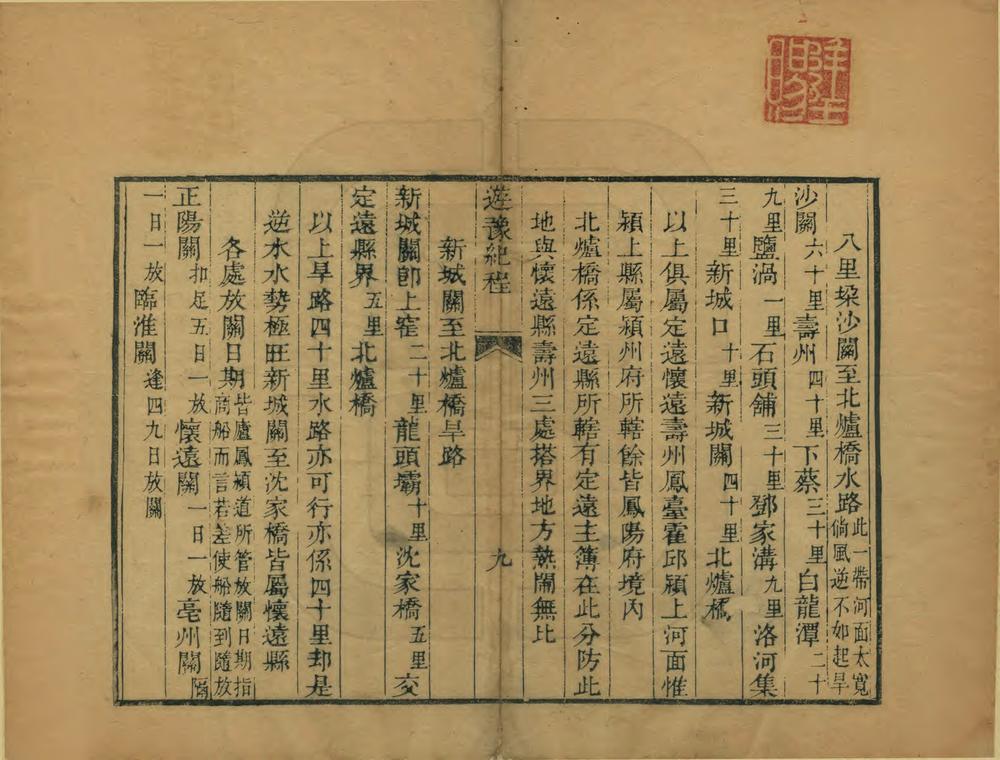 八里垜沙關至北爐橋水路此一帶河面太寬倘風逆不如起旱
沙關六十里壽州四十里下蔡三十里白龍潭二十
九里鹽渦一里石頭舖三十里鄧家溝九里洛河集
三十里新城口十里新城關四十里北爐橋
以上俱屬定遠懷遠壽州鳳臺霍邱潁上河面惟
潁上縣屬潁州府所轄餘皆鳳陽府境內
北爐橋係定遠縣所轄有定遠主簿在此分防此
地與懷遠縣壽州三處搭界地方熱鬧無比
遊豫紀程
九
新城關至北爐橋旱路
新城關卽上窰二十里龍頭壩十里沈家橋五里交
定遠縣界五里北爐橋
以上旱路四十里水路亦可行亦係四十里却是
逆水水勢極旺新城關至沈家橋皆屬懷遠縣
各處放關日期皆廬鳳潁道所管放關日期指商船而言若差使船隨到隨放
正陽關扣足五日一放懷遠關一日一放亳州關隔
一日一放臨淮關逢四九日放關